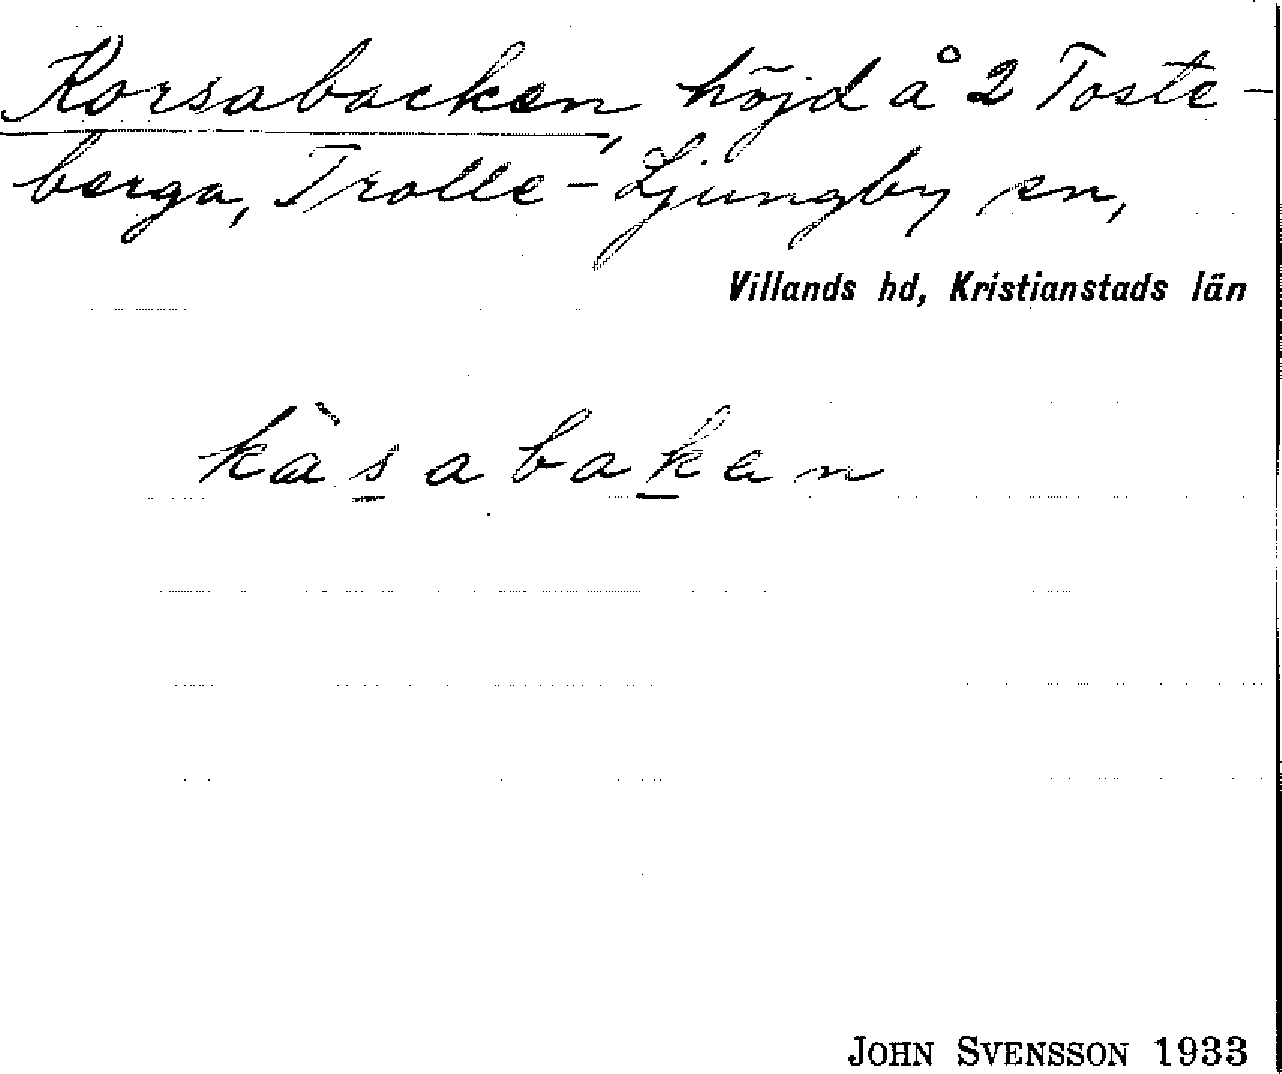 Korsabacken, höjd å 2 Toste-
berga, Trolle-Ljungby sn,
Villands hd, Kristianstads län
kàsabakan
JOHN SVENSSON 1933